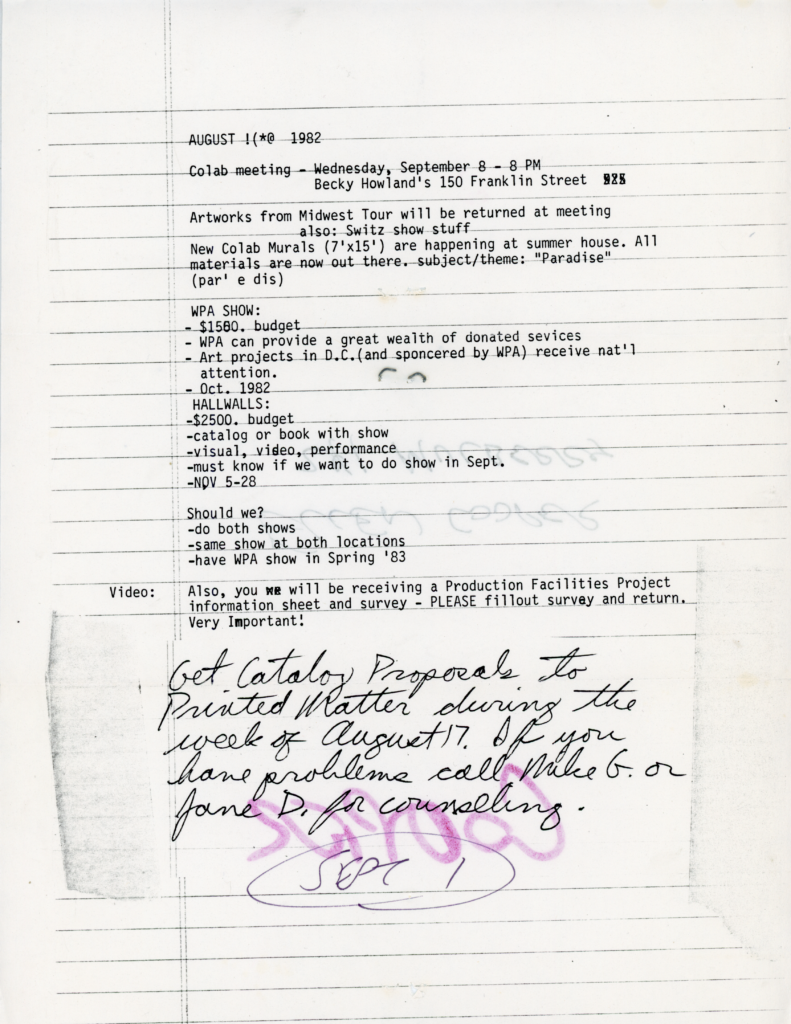 AUGUST !(*@ 1982
Colab meeting - Wednesday, September 8 - 8 PM
Becky Howland's 150 Franklin Street
Artworks from Midwest Tour will be returned at meeting
also: Switz show stuff
New Colab Murals (7'x15') are happening at summer house. All
materials are now out there. subject/theme: "Paradise"
(par' e dis)
WPA SHOW:
- $1500. budget
- WPA can provide a great wealth of donated sevices
- Art projects in D.C.(and sponcered by WPA) receive nat'l
attention.
- Oct. 1982
HALLWALLS:
-$2500. budget
-catalog or book with show
-visual, video, performance
-must know if we want to do show in Sept.
-NOV 5-28
Should we?
-do both shows
-same show at both locations
-have WPA show in Spring '83
Video: Also, you we will be receiving a Production Facilities Project
information sheet and survey - PLEASE fillout survey and return.
Very Important!
Get Catalog Proposals to
Printed Matter during the
week of August 17. If you
have problems call Mike G. or
Jane D. for counselling.
SEPT 1